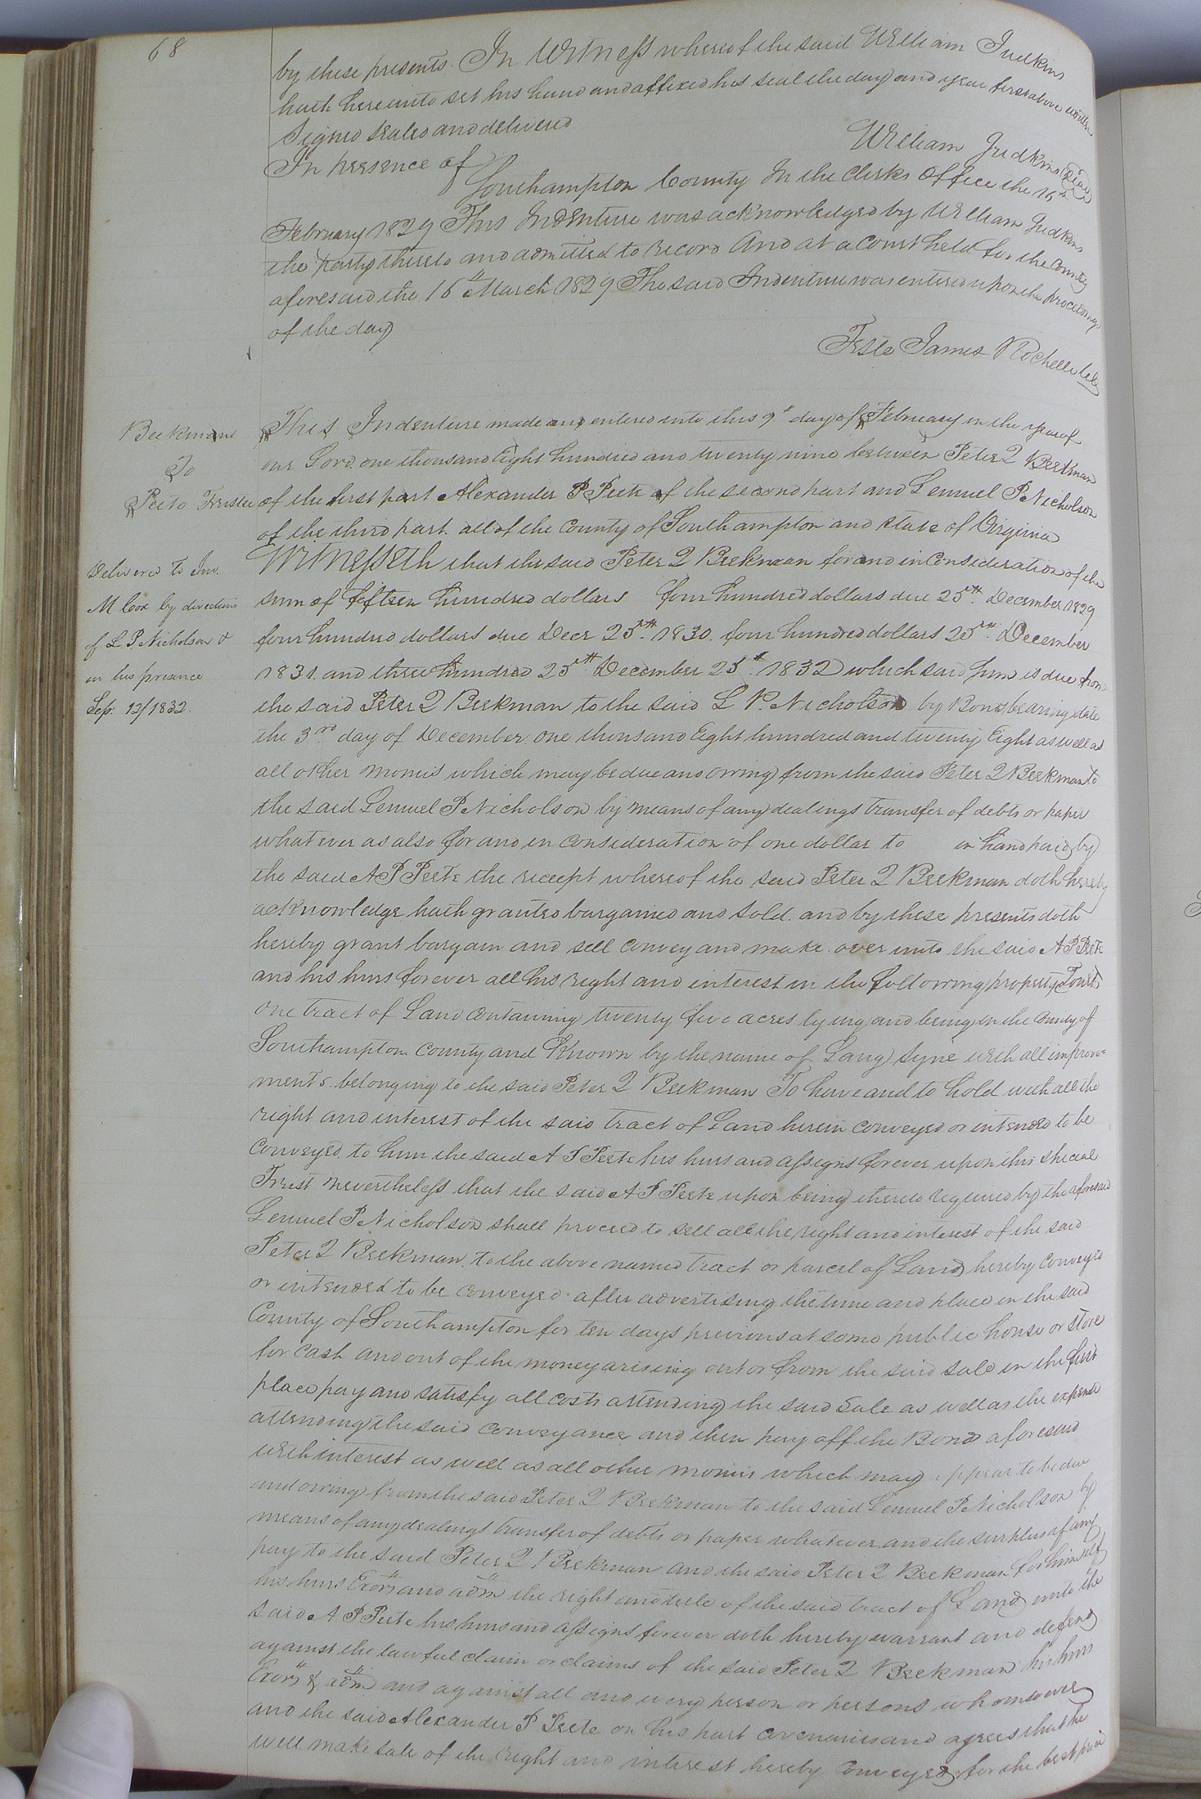 68
by these presents. In Witness whereof the said William Judkins
hath hereunto set his hand and affixed his seal the day and year first above written
Signed sealed and delivered
William Judkins Seal
In presence of
Southampton County In the Clerks Office the 16th
February 1829 This Indenture was acknowledged by William Judkins
the party thereto and admitted to record And at a Court held for the County
aforesaid the 16th March 1829 The said Indenture was entered upon the proceedings
of the day
Teste James Rochelle Clk
Beekmans
To
Peete Trustee
This Indenture made and entered into this 9th day of February in the year of
our Lord one thousand Eight hundred and twenty nine between Peter Q Beekman
of the first part Alexander P Peete of the second part and Lemuel P Nicholson
of the third part. all of the County of Southampton and state of Virginia
Delivered to Jno.
M Cox by direction
of L P. Nicholson &
in his presence
Sept. 12/1832.
Witnesseth that the said Peter Q Beekman for and in Consideration of the
sum of fifteen hundred dollars four hundred dollars due 25th December 1829
four hundred dollars due Decr 25th 1830. four hundred dollars 25th December
1831. and three hundred 25th December 25th 1832 which said sum is due from
the said Peter Q Beekman to the said L P. Nicholson by Bond bearing date
the 3rd day of December one thousand Eight hundred and twenty Eight as well as
all other monies which may be due and owing from the said Peter Q Beekman to
the said Lemuel P Nicholson by means of any dealings transfer of debts or paper
whatever as also for and in consideration of one dollar to in hand paid by
the said A P Peete the receipt whereof the said Peter Q Beekman doth hereby
acknowledge hath granted bargained and sold. and by these presents doth
hereby grant bargain and sell convey and make over unto the said A P Peete
and his heirs forever all his right and interest in the following property Towit
One tract of Land containing twenty five acres lying and being in the County of
Southampton County and Known by the name of Lang Syne with all improve
ments. belonging to the said Peter Q Beekman To have and to hold with all the
right and interest of the said tract of Land herein conveyed or intended to be
Conveyed to him the said A P Peete his heirs and assigns forever upon this special
Trust nevertheless that the said A P Peete upon being thereto required by the aforesaid
Lemuel P Nicholson shall proceed to sell all the right and interest of the said
Peter Q Beekman to the above named tract or parcel of Land hereby conveyed
or intended to be conveyed after advertising the time and place in the said
County of Southampton for ten days previous at some public house or store
for cash and out of the money arising out or from the said sale in the first
place pay and satisfy all costs attending the said Sale as well as the expense
attending the said Conveyance and then pay off the Bond aforesaid
with interest as well as all other monies which may appear to be due
and owing from the said Peter Q Beekman to the said Lemuel P Nicholson by
means of any dealings transfer of debts or paper whatever and the surplus if any
pay to the said Peter Q Beekman and the said Peter Q Beekman for himself
his heirs Exors and adm the right and title of the said tract of Land unto the
said A P Peete his heirs and assigns forever doth hereby warrant and defend
against the lawful claim or claims of the said Peter Q Beekman his heirs
Exors & adm and against all and every person or persons whomsoever
and the said Alexander P Peete on his part covenants and agrees that he
will make sale of the right and interest hereby conveyed for the best price